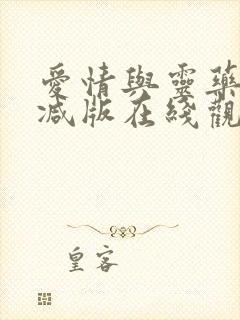 愛情與靈藥
減版在綫觀
皇客